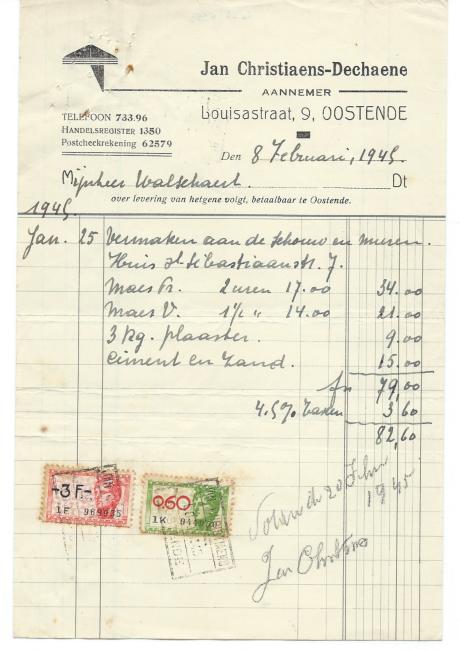 Jan Christiaens-Dechaene
AANNEMER
Louisastraat, 9, OOSTENDE
TELEFOON 733.96
HANDELSREGISTER 1350
Postcheckrekening 62579
Den 8 Februari, 1945.
Mijnheer Walschaert. Dt
over levering van hetgene volgt, betaalbaar te Oostende.
1945.
Jan. 25 Vermaken aan de schouw en muren.
Huis St Sebastiaanstr. 7.
Maes Fr. 2 uren 17.00 34.00
Maes V. 1½ " 14.00 21.00
3 kg. plaaster. 9.00
Ciment en Zand. 15.00
frs 79,00
4.5% taxen 3,60
82,60
+3F.-
1F 969935
0.60
1K
Voldaan de 20 Febr
1945
Jan Christiaens